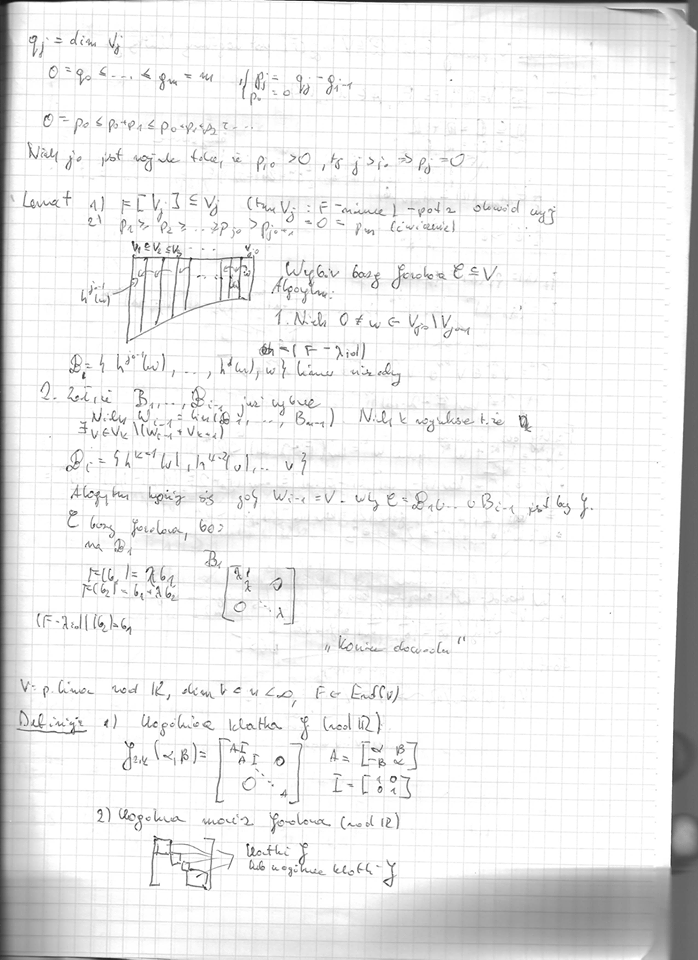 q_j = dim V_j
0 = q_0 ≤ ... ≤ q_m = m { p_j = q_j - q_{j-1}
p_0 = 0
0 = p_0 ≤ p_0+p_1 ≤ p_0+p_1+p_2 ≤ ...
Niech j_0 jest najw. takie, że p_{j_0} > 0, tzn j > j_0 ⇒ p_j = 0
Lemat 1) F[V_j] ⊆ V_j (tzn V_j : F-niezm.) - patrz dowód wyżej
2) p_1 ≥ p_2 ≥ ... ≥ p_{j_0} > p_{j_0+1} = 0 = p_m (ćwiczenie)
V_1 ⊆ V_2 ⊆ V_3 ... V_{j_0}
h^{j_0-1}(w)
Wybór bazy Jordana C ⊆ V
Algorytm:
1. Niech 0 ≠ w ∈ V_{j_0} \ V_{j_0-1}
h = (F - λid)
B_1 = { h^{j_0-1}(w), ..., h^1(w), w } liniowo niezależny
2. Zał, że B_1, ..., B_{i-1} już wybrane
Niech W_{i-1} = Lin(B_1, ..., B_{i-1}) Niech k największe t. że
∃ v ∈ V_k \ (W_{i-1} + V_{k-1})
B_i = { h^{k-1}(v), h^{k-2}(v), ... v }
Algorytm kończy się gdy W_{i-1} = V. wtedy C = B_1 ∪ ... ∪ B_{i-1} jest bazą J.
C baza Jordana, bo:
na B_1
F(b_1) = λb_1
F(b_2) = b_1 + λb_2
B_1
[λ 1 0
λ
0 ⋱ λ]
(F - λid)(b_2) = b_1
„Koniec dowodu"
V = p. liniowa nad ℝ, dim V = n < ∞, F ∈ End(V)
Definicja 1) Uogólniona klatka J (nad ℝ)
J_{2,k}(α, β) = [A I
A I 0
0 ⋱
A]
A = [α β
-β α]
I = [1 0
0 1]
2) Uogólniona macierz Jordana (nad ℝ)
klatki J
lub uogólnione klatki J